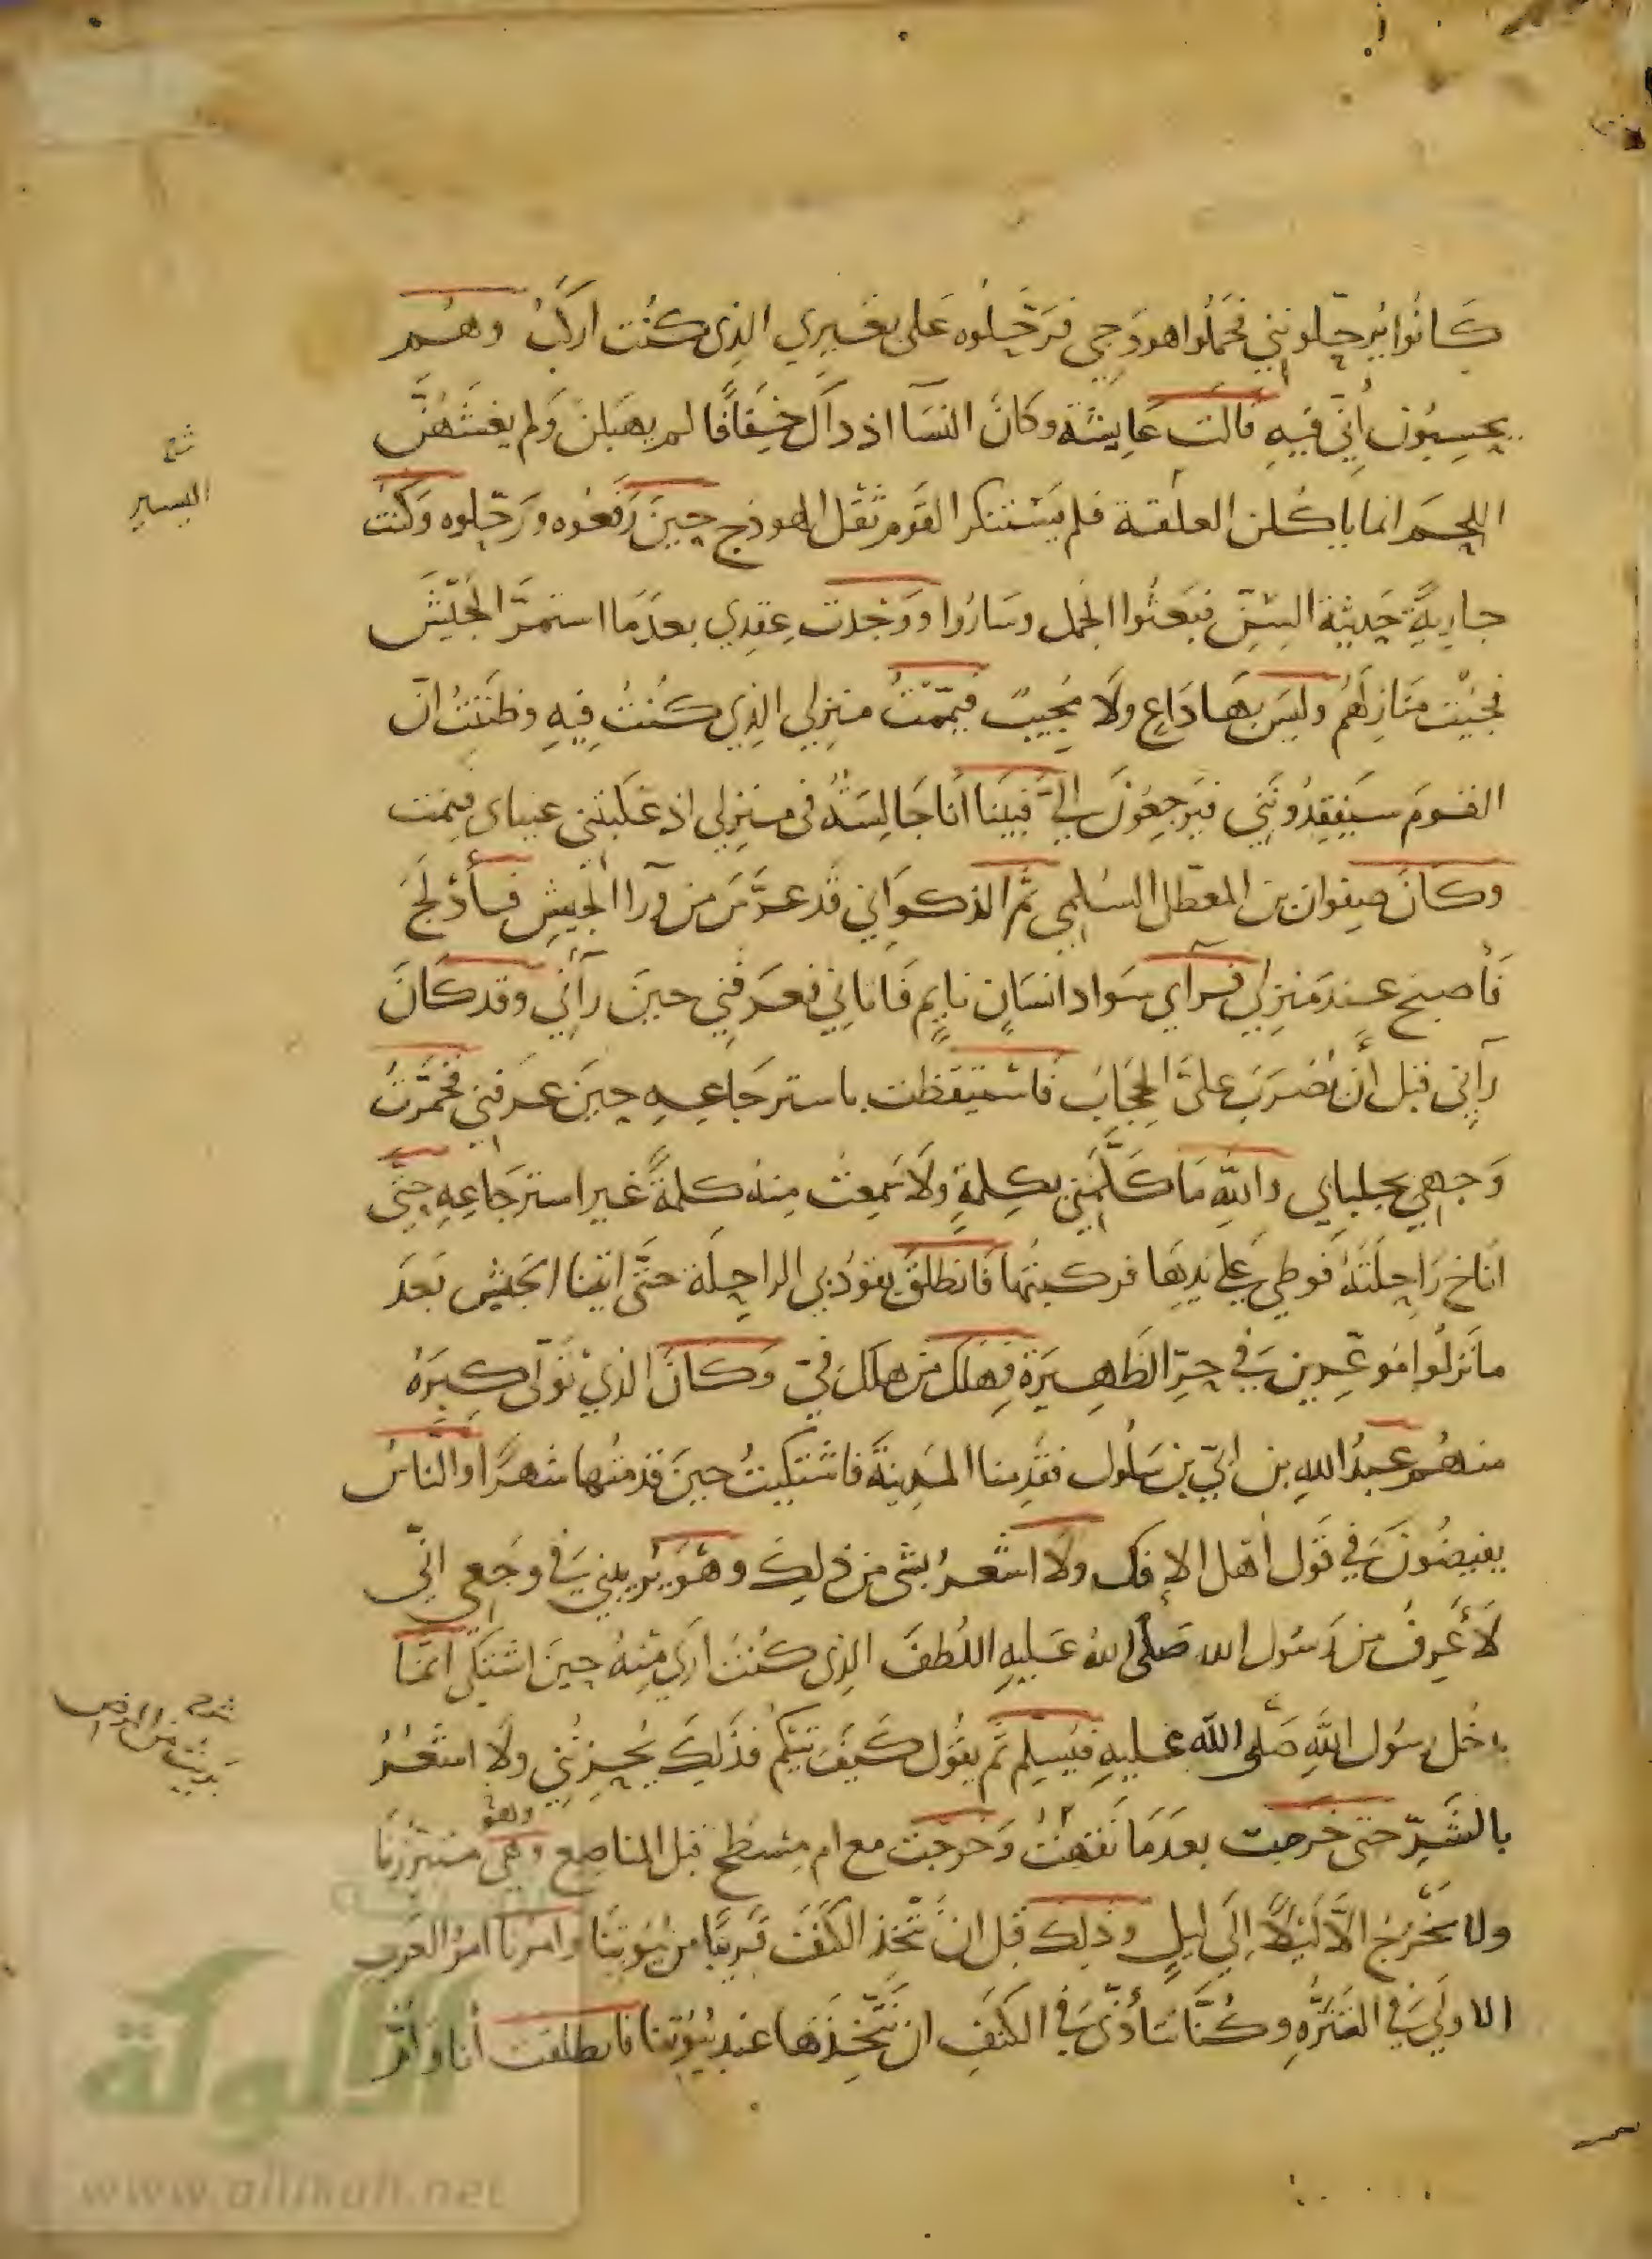 كَانُوا يُرحّلونني فحَمَلُوا هودَجي فَرَحَّلُوه عَلى بعَيرِي الذي كُنْت اركَبُ وهُم
يحسِبُون أنّي فيهِ قالت عَايشَة وكانَ النسَآ اذ داك خِفَافًا لم يهبَلنَ وَلم يغشَهُنَّ
اللحم انما ياكلن العلقة فلم يَسْتنكر القَوم ثقل الهودج حِينَ رَفعُوه ورَحّلوه وكنتُ
جاريةً حَديثة السِّنِّ فبَعثوا الجمل وسَارُوا ووَجَدت عِقدِي بعدَ مَا استمرَّ الجَيْشَ
فجئت مَنازِلَهُم وليسَ بهَا دَاعٍ ولَا مُجِيبٌ فيَمّمْتُ منزِلي الذِي كُنتُ فِيهِ وظنَنتُ انّ
القومَ سَيفقِدُونَنِي فيَرجعُونَ إليَّ فبَينا انا جَالِسَةٌ في منزِلي اذ غَلبَتني عيناى فنمت
وكانَ صفوان بن المعطّل السُلمي ثم الذكوَاني قد عرَّسَ من ورآ الجيشِ فأدْلَجَ
فَأصبَح عندَ مَنزِلي فرآي سَوادَ انسَانٍ نايمٍ فَاتاني فعَرفني حينَ رآني وقد كَانَ
رآني قبل أن يُضرَبَ عليَّ الحِجَابُ فاسْتيقَظت باسترجَاعِهِ حِينَ عرفني فخمّرتُ
وَجهي بجلبابي والله مَا كَلَّمَني بكلمةٍ ولَا سَمعتُ منهُ كلمةً غير استرجَاعِهِ حتّى
اناخ رَاحِلَتَهُ فَوطِي على يَدِهَا فركبتُها فَانطلقَ يقودُ بي الراحِلَة حتَّى اتينا الجَيشَ بَعدَ
مانزلُوا مُوغِرين في حرِّ الظَهِيرَةِ فهَلكَ من هلك فيّ وكانَ الذيْ تَوَلّى كبرَهُ
منهُم عبدُ اللهِ بن ابيّ بن سَلُول فقدِمنا المدينَةَ فاشتكيتُ حينَ قدمتُها شهرًا والنَّاسُ
يفيضُونَ في قول أهل الإفك ولَا اشعُرُ بشى من ذلِكَ وهوَ يَريبُني في وجَعي انّي
لَا أعرِفُ من رَسُول الله صَلى اللهُ عَليهِ اللُطفَ الذي كُنتُ ارَي منهُ حِينَ اشتكي انما
يدخُل رسُول اللَّهِ صَلّى الله عليهِ فيُسلّم ثم يقول كيفَ تيكُم فذَلِكَ يُحزِنُني ولَا اشعُرُ
بالشَّرّ حتى خرجت بعدَ مَا نقَهْتُ وَخرَجت مع ام مِسْطح قبل المناصِع وهي متبرزنا
وهو
ولا نخرُج الَّا لَيْلًا إلَى ليلٍ وذلِك قبل ان نَتَّخذ الكَنفَ قريبًا من بُيُوتِنَا وامرنا امرُ العَربِ
الاولَي فى التنَزُّهِ وكُنَّا نتَأذّى فى الكَنَفِ ان نَتَّخِذَهَا عند بُيُوتنا فانطلقت أنا وأمّ
اليسير